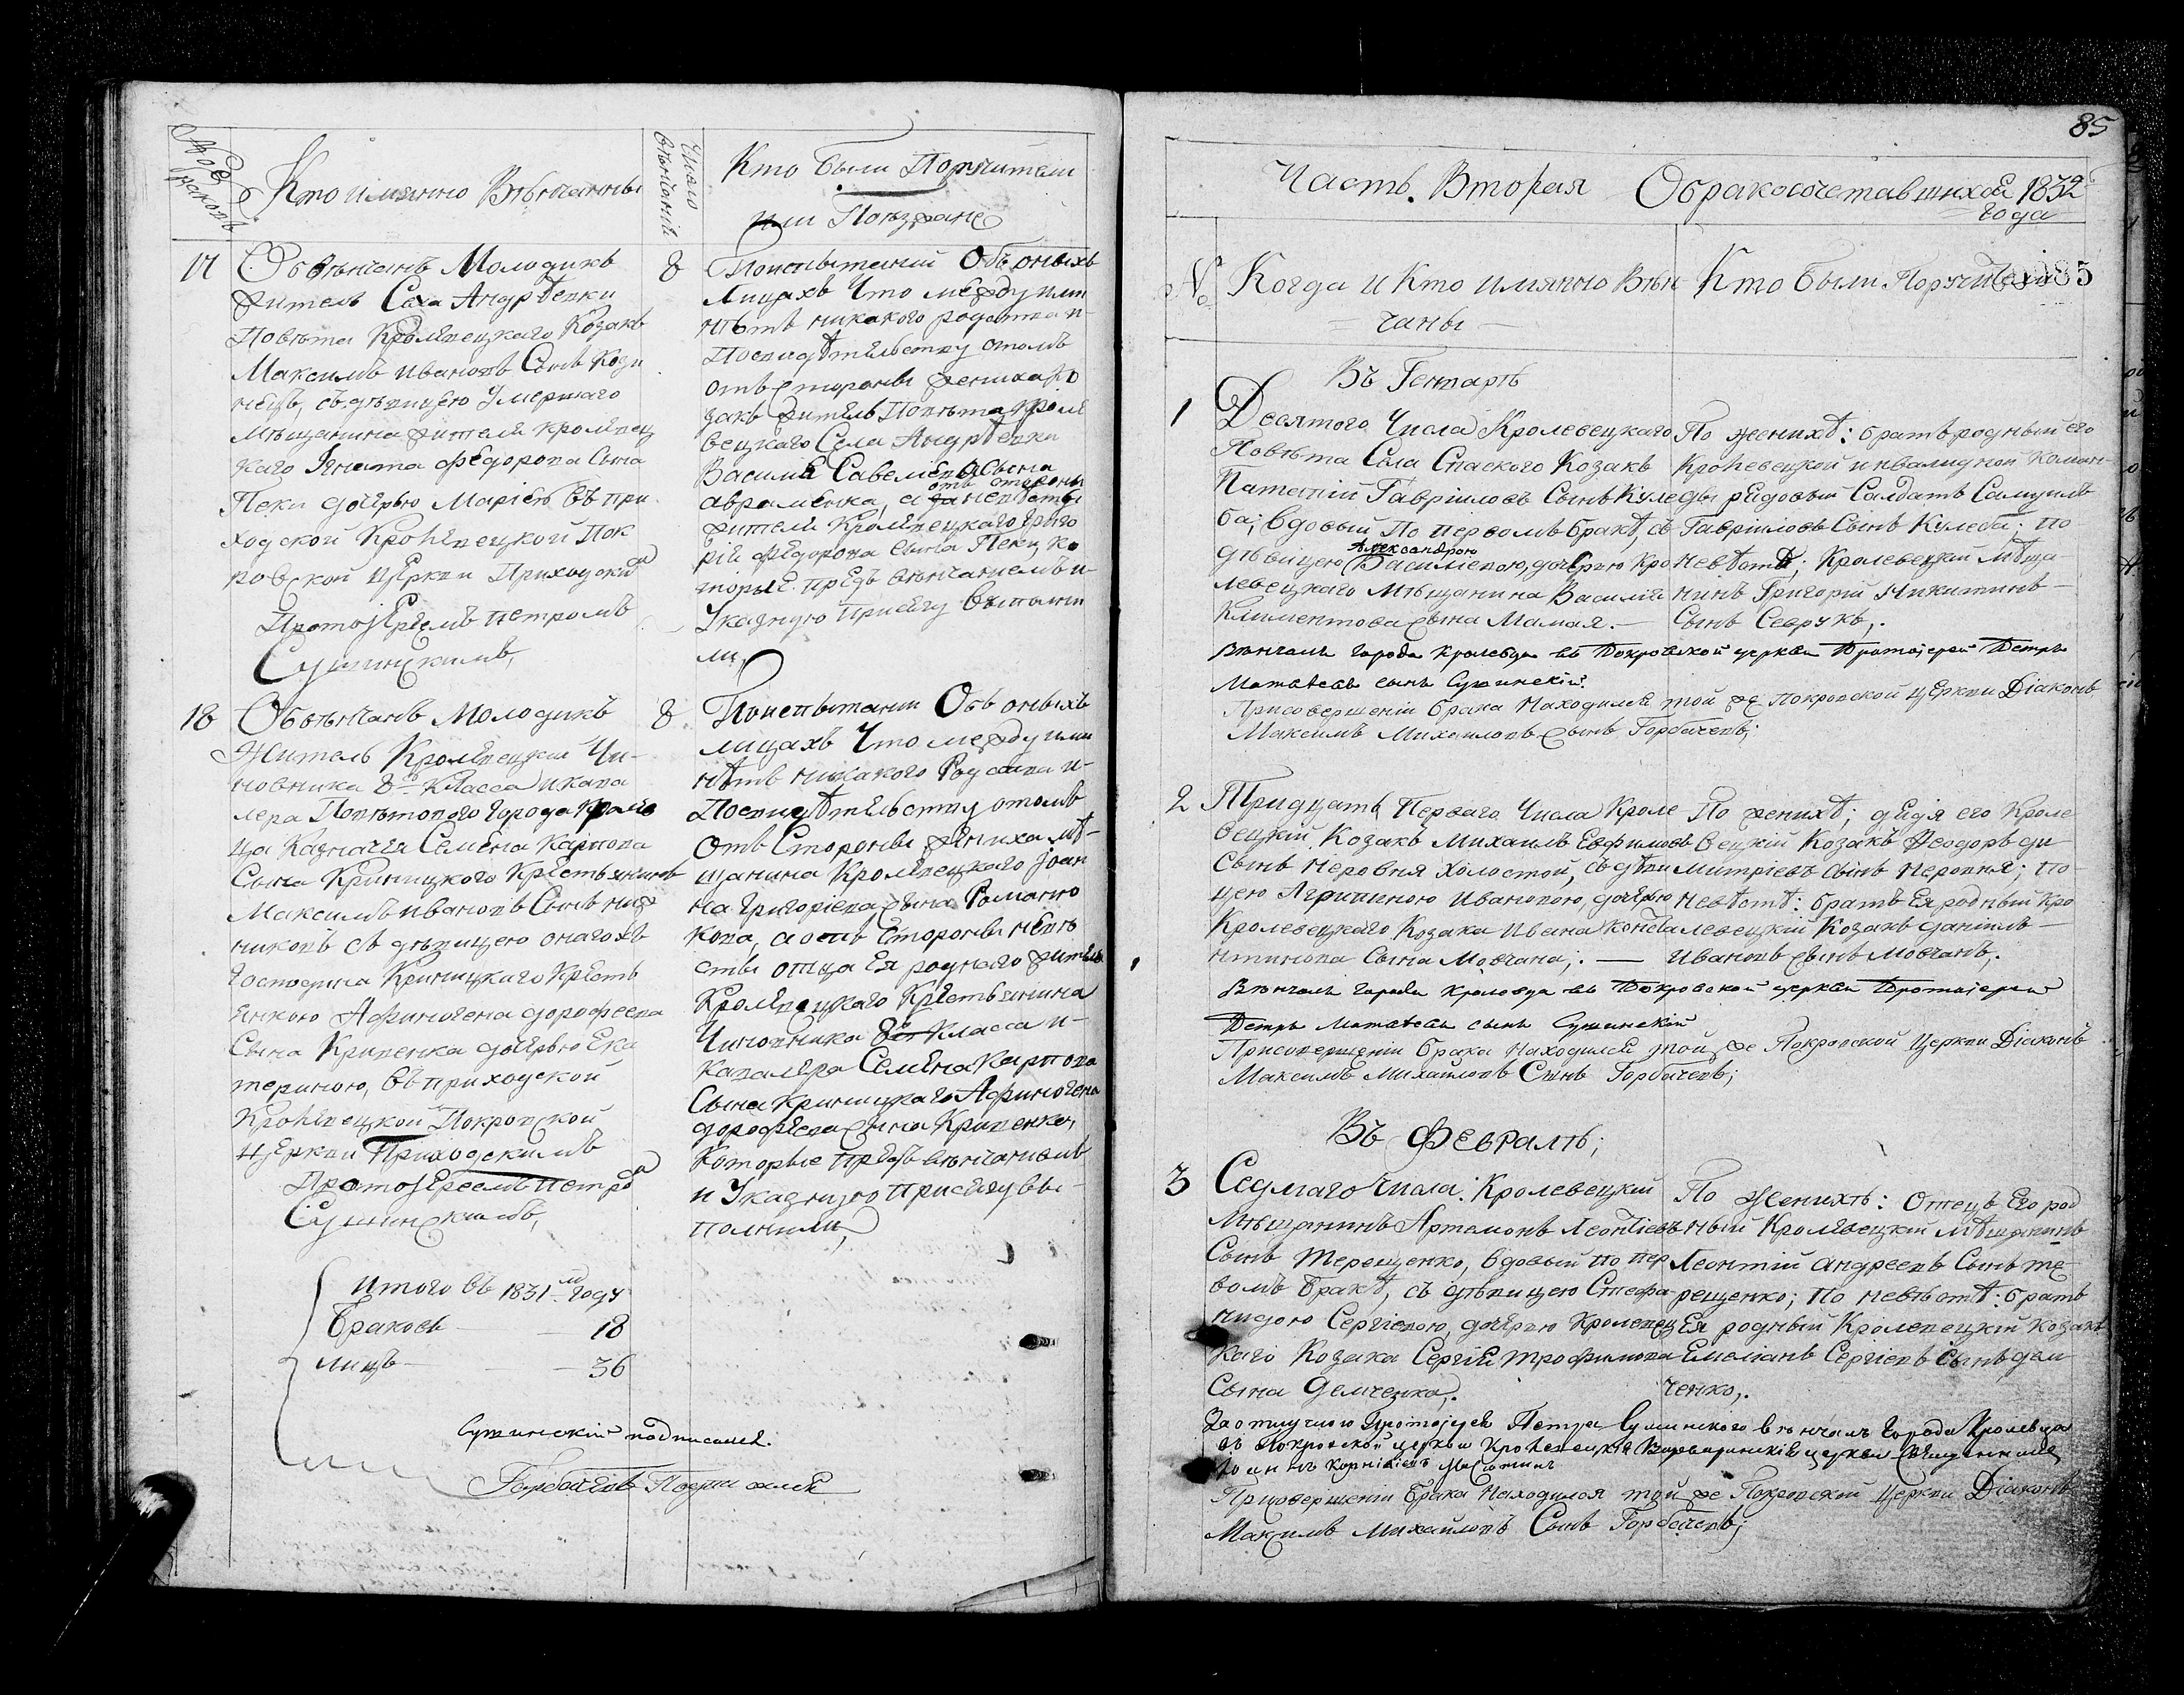 № браковъ
Кто имянно Вѣнчанны
Число вѣнчаній
Кто были Поручители
или Поѣзжане
17
Обвѣнчанъ Молодикъ
житель Села Андрѣевки
Повѣта Кролевецкаго Козакъ
Максимъ Ивановъ Сынъ Кози
нецъ, съ дѣвицею Умершаго
Мѣщанина жителя кролевец
каго Игната Федорова Сына
Пеки дочерью Маріею въ при
ходской Кролевецкой Пок
ровской церкви Приходскимъ
Протоіереемъ Петромъ
Сушинскимъ,
8
По испытаніи Объ оныхъ
Лицахъ Что между ими
нѣтъ никакого родства и
По свидѣтельству о томъ
отъ стороны жениха ко
закъ житель Повѣта Кроле
вецкаго Села Андрѣевки
Василій Савельевъ Сына
отъ стороны
авраменка, а за невѣсты
жителя Кролевецкаго Григо
рія Федорова сына Пеки, ко
торые предъ вѣнчаніемъ и
Указную присягу выполни
ли,
18
Обвѣнчанъ Молодикъ
Житель Кролевецкій Чи-
новника 8го Класса и кава
лера Повѣтового города Кроле
вца Казначея Семена Карпова
Сына Криницкого Крестьянинъ
Максимъ Ивановъ Сынъ
никовъ съ дѣвицею онаго жъ
Господина Криницкаго Кресть
янкою Афиногена дорофеева
Сына Кривенка дочерью Ека
териною, въ приходской
Кролевецкой Покровской
Церкви Приходскимъ
Протоіереемъ Петромъ
Сушинскимъ,
8
По испытаніи Объ оныхъ
лицахъ Что между ими
нѣтъ никакого Родства и-
По свидѣтельству о томъ
Отъ Стороны жениха мѣ-
щанина Кролевецкаго Іоан
на Григоріева сына Романно
кова, а отъ Стороны невѣ
сты отца Ея роднаго жителя
Кролевецкаго Крестьянина
Чиновника 8го Класса и-
Кавалера Семена Карпова
Сына Криницкаго Афиногена
дорофѣева сына Кривенка,
которые предъ вѣнчаніемъ
и Указную присягу вы-
полнили,
Итого въ 1831м Году
Браковъ — 18
лицъ — 36
Сушинскій подписался.
Горбачевъ Подписался
85
Часть Вторая О бракосочетавшихся 1832 года
№
Когда и Кто имянно Вѣн
чаны
Кто были Поручители
85
Въ Генварѣ
1
Десятого Числа Кролевецкаго
Повѣта Села Спаского Козакъ
Патапій Гавріиловъ Сынъ Куле
ба; вдовый По первомъ бракѣ, съ
Александрою
дѣвицею Василіевою, дочерью Кро
левецкаго Мѣщанина Василія
Климентова сына Мамая. —
По женихѣ: братъ родный его
Кролевецкой инвалидной коман
ды рядовый Салдатъ Самуилъ
Гавріиловъ Сынъ Кулеба; по
невѣстѣ; Кролевецкій Мѣща
нинъ Григорій Никитинъ —
Сынъ Севрукъ,.
Вѣнчалъ города Кролевца въ Покровской церкви Протоіерей Петръ
Матвѣевъ сынъ Сушинскій.
При совершеніи брака Находился той же Покровской церкви Діаконъ
Максимъ Михайловъ сынъ Горбачевъ;
2
Тридцать Перваго Числа Кроле
вецкій Козакъ Михаилъ Евфимовъ
Сынъ Неровня Холостой, съ дѣви
цею Агрипиною Ивановою, дочерью
Кролевецкаго Козака Ивана Конста
нтинова Сына Мовчана,. —
По женихѣ; дядя его Кроле
вецкій Козакъ Феодоръ ди
митріевъ Сынъ Неровня; по
невѣстѣ: братъ Ея родный Кро
левецкій Козакъ даніилъ —
Ивановъ сынъ Мовчанъ,.
Вѣнчалъ города Кролевца въ Покровской церкви Протоіерей
Петръ Матвѣевъ сынъ Сушинскій
При совершеніи брака Находился той же Покровской Церкви Діаконъ
Максимъ Михайловъ Сынъ Горбачевъ;
Въ Февралѣ;
3
Седмаго Числа: Кролевецкій
Мѣщанинъ Артемонъ Леонтіевъ
Сынъ Терещенко, вдовый по пер
вомъ бракѣ, съ дѣвицею Стефа
нидою Сергіевою, дочерью Кролевец
каго Козака Сергія Трофимова
Сына Демченка,.
По Женихѣ: Отецъ Его род
ный Кролевецкій мѣщанинъ
Леонтій андреевъ Сынъ те
рещенко; По невѣстѣ: братъ
Ея родный Кролевецкій Козакъ
Емеліанъ Сергіевъ Сынъ дем
ченко,.
За отлучкою Протоіерея Петра Сушинского вѣнчалъ города Кролевца
въ Покровской церкви Кролевецкія Варваринскія церкви Священникъ
Іоаннъ Корніліевъ
При совершеніи брака Находился той же Покровской Церкви Діаконъ
Максимъ Михайловъ Сынъ Горбачевъ;